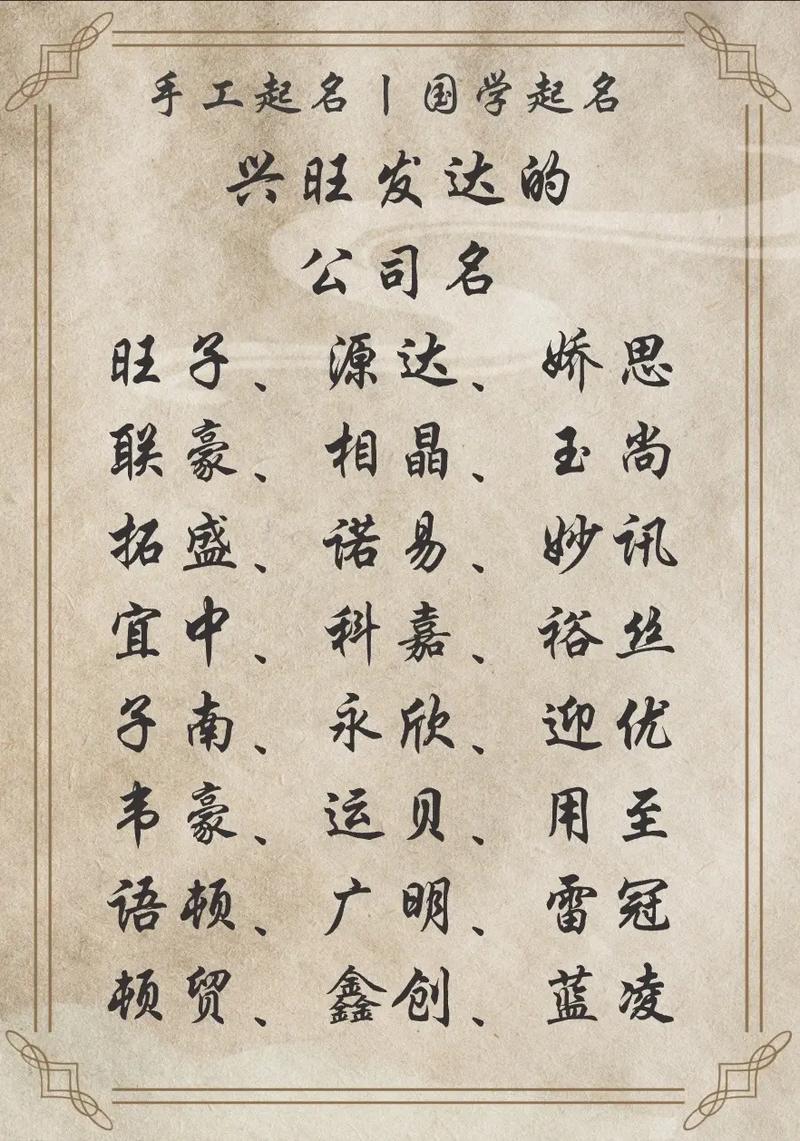 手工起名丨国学起名
兴旺发达的
公司名
旺子、源达、娇思
联豪、相晶、玉尚
拓盛、诺易、妙讯
宜中、科嘉、裕丝
子南、永欣、迎优
韦豪、运贝、用至
语顿、广明、雷冠
顿贸、鑫创、蓝凌